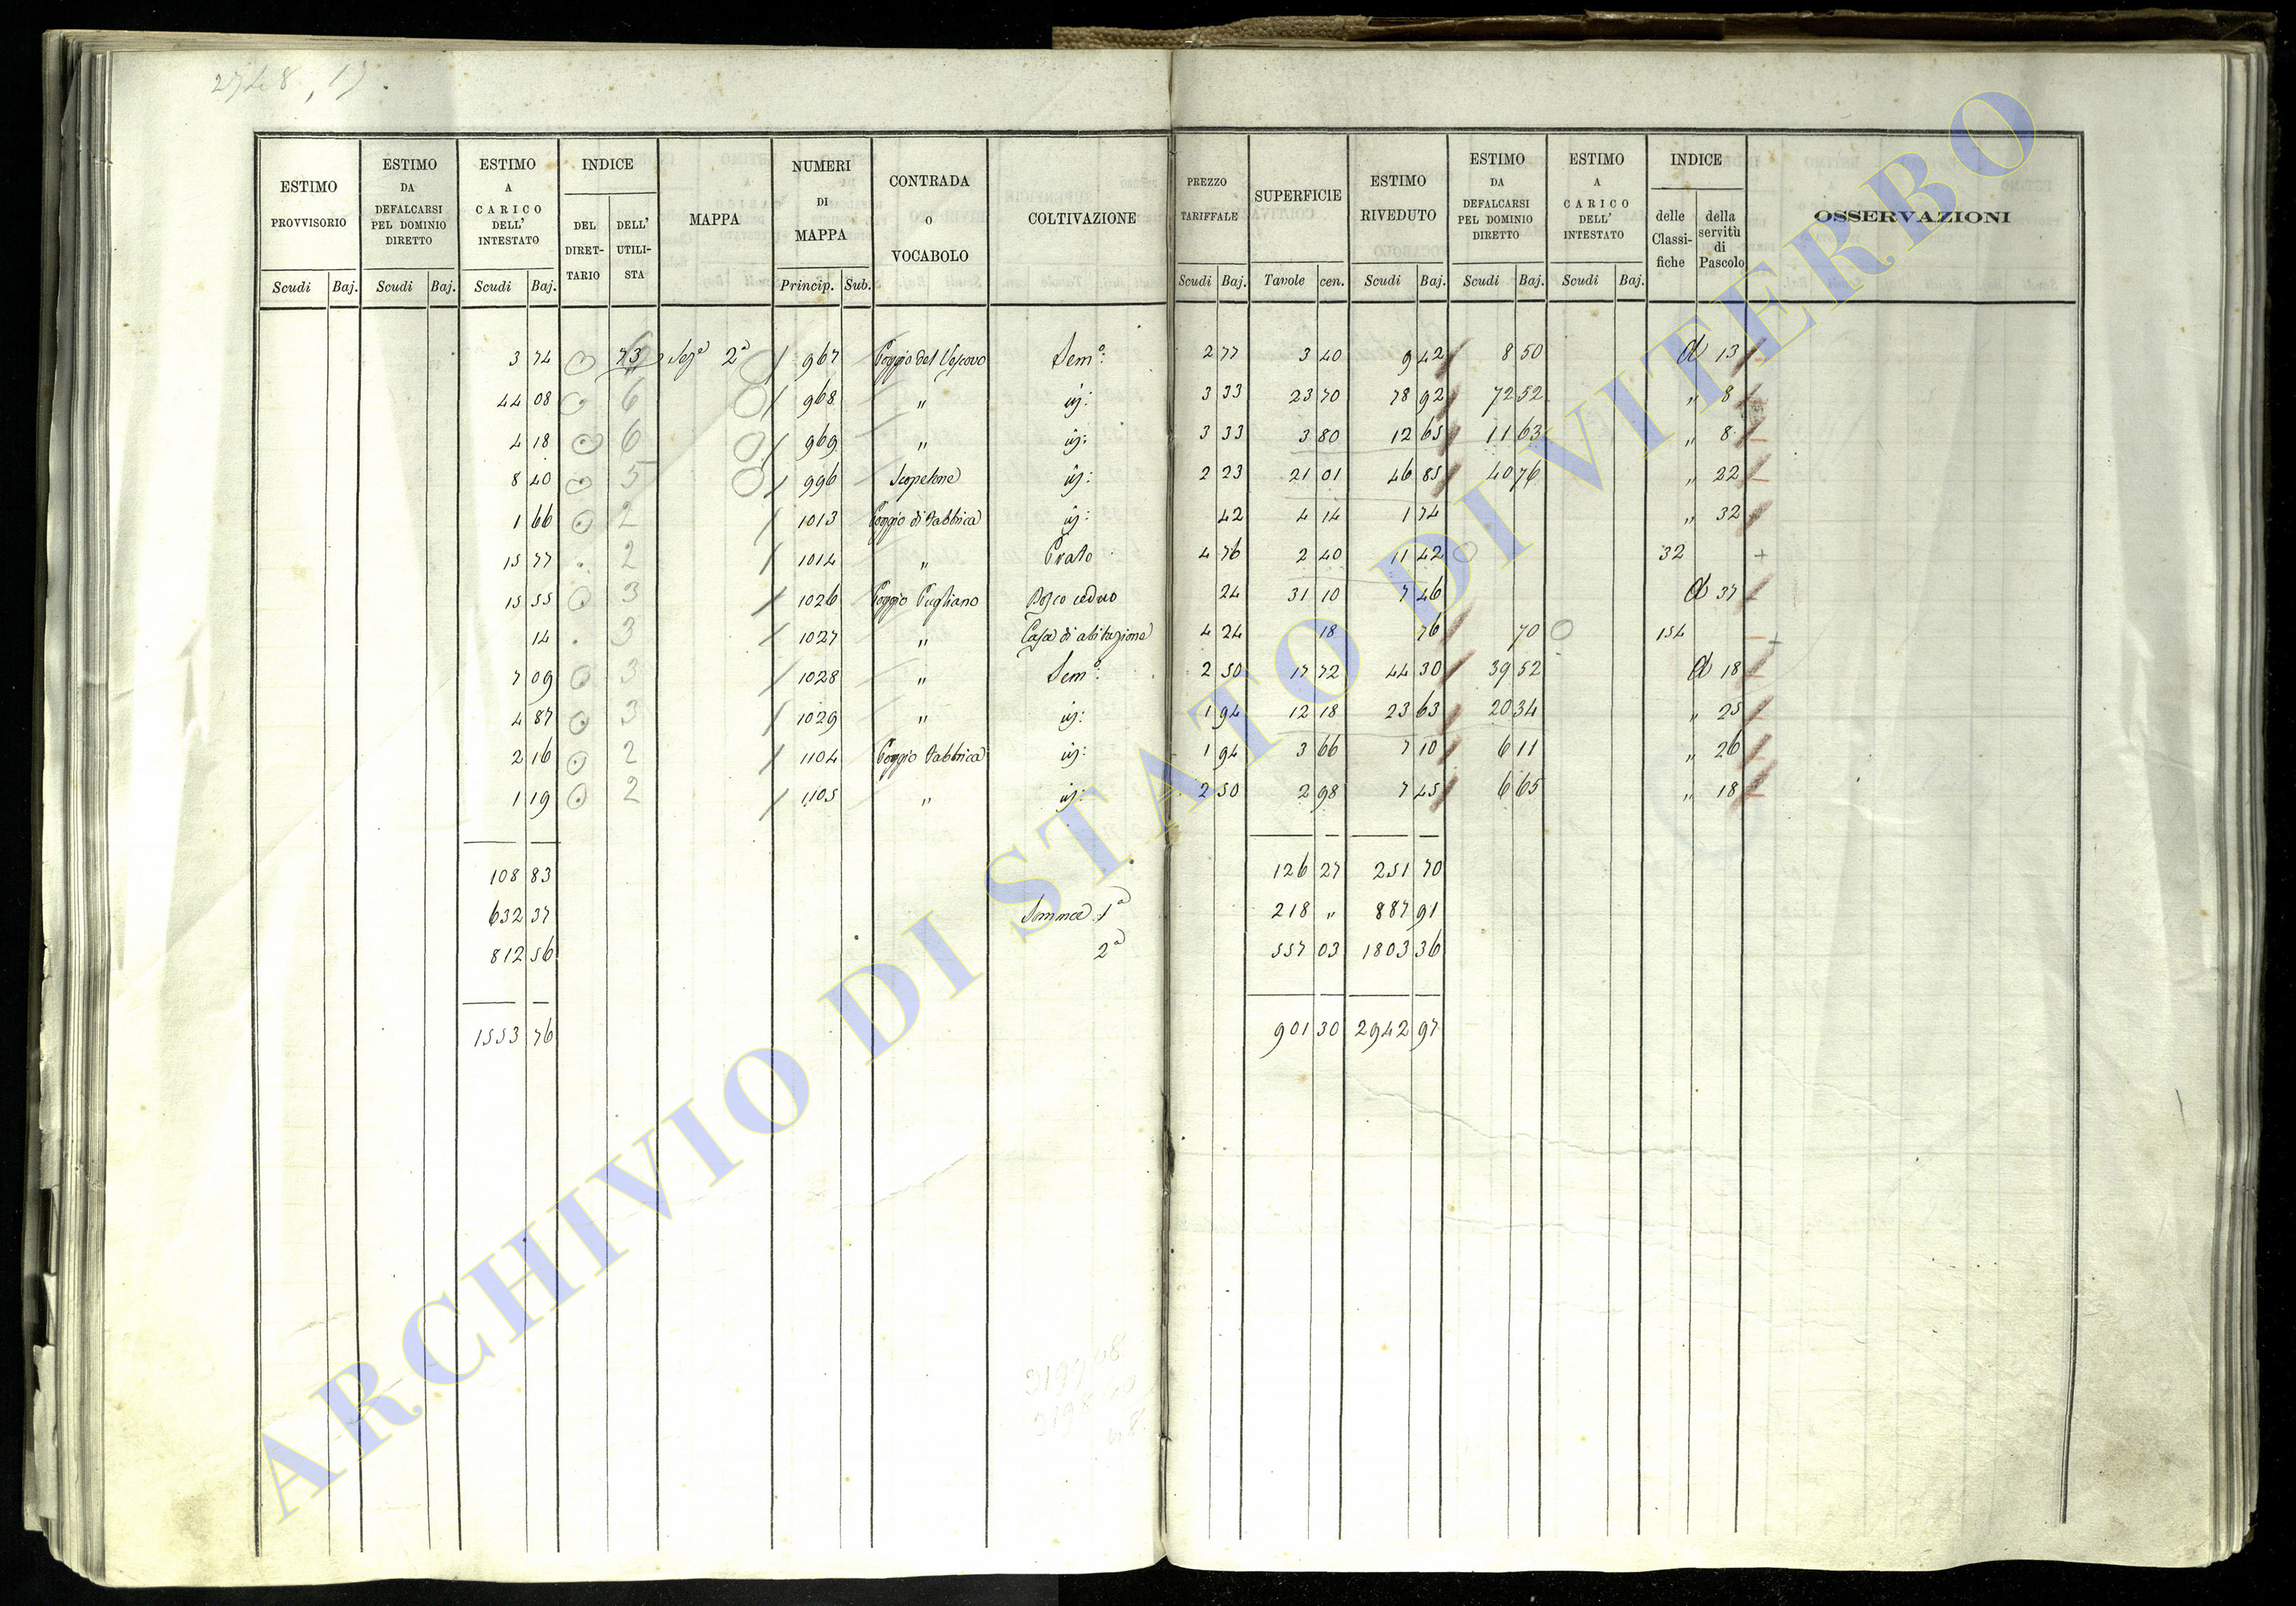 2748, 17.
ESTIMO PROVVISORIO Scudi Baj.
ESTIMO DA DEFALCARSI PEL DOMINIO DIRETTO Scudi Baj.
ESTIMO A CARICO DELL' INTESTATO Scudi Baj.
INDICE DEL DIRET-TARIO DELL' UTILI-STA
MAPPA
NUMERI DI MAPPA Princip. Sub.
CONTRADA O VOCABOLO
COLTIVAZIONE
PREZZO TARIFFALE Scudi Baj.
SUPERFICIE Tavole cen.
ESTIMO RIVEDUTO Scudi Baj.
ESTIMO DA DEFALCARSI PEL DOMINIO DIRETTO Scudi Baj.
ESTIMO A CARICO DELL' INTESTATO Scudi Baj.
INDICE delle Classi-fiche della servitù di Pascolo
OSSERVAZIONI
3 74 73 Sez.e 2a 967 Poggio del Vescovo Sem.o: 2 77 3 40 9 42 8 50 d 13
44 08 6 968 " id: 3 33 23 70 78 92 72 52 " 8
4 18 6 969 " id: 3 33 3 80 12 65 11 63 " 8
8 40 5 996 Scopetone id: 2 23 21 01 46 85 40 76 " 22
1 66 2 1013 Poggio di Fabbrica id: 42 4 14 1 74 " 32
15 77 2 1014 " Prato 4 76 2 40 11 42 32 +
15 55 3 1026 Poggio Pugliano Bosco ceduo 24 31 10 7 46 d 37
14 3 1027 " Casa di abitazione 4 24 18 76 70 154 +
7 09 3 1028 " Sem.o: 2 50 17 72 44 30 39 52 d 18
4 87 3 1029 " id: 1 94 12 18 23 63 20 34 " 25
2 16 2 1104 Poggio Fabbrica id: 1 94 3 66 7 10 6 11 " 26
1 19 2 1105 " id: 2 50 2 98 7 45 6 65 " 18
108 83 126 27 251 70
632 37 Somma 1a 218 " 887 91
812 56 2a 557 03 1803 36
1553 76 901 30 2942 97
ARCHIVIO DI STATO DI VITERBO